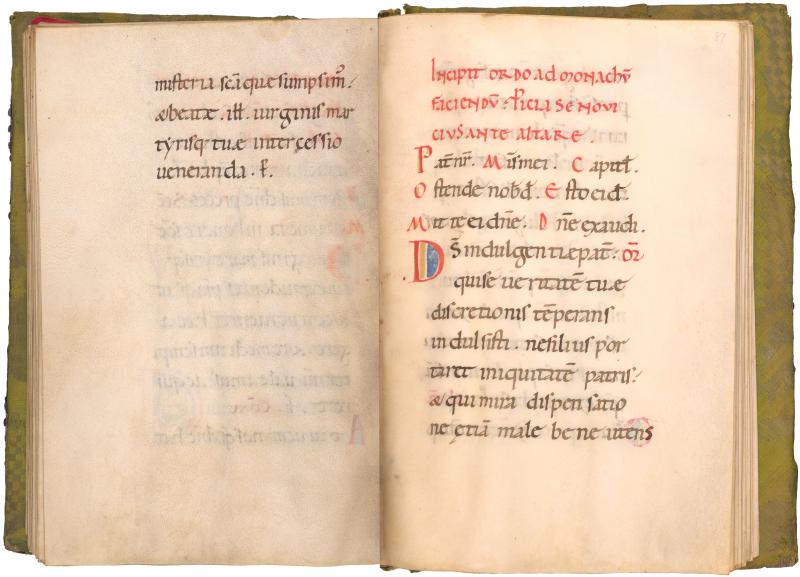 misteria scāque sumpsim᷒.
& beatæ . ill . uirginis mar
tyrisq; tuæ intercessio
ueneranda . P̄.
87
Incipit ordo ad monachū
faciendū : Pᵃ clā se novi
cius ante altare .
Pat̄ nr̄ . Misr̄mei . Capitl̄ .
Ostende nob̄ d̄ . Esto ei d̄ .
Mitte ei dn̄e . Dn̄e exaudi .
Ds̄ indulgentie pat̄ : Or̄
qui seueritatē tuæ
discretionis tēperans
indulsisti . ne filius por
taret iniquitatē patris .
& qui mira dispensatio
ne ętiā male bene utens